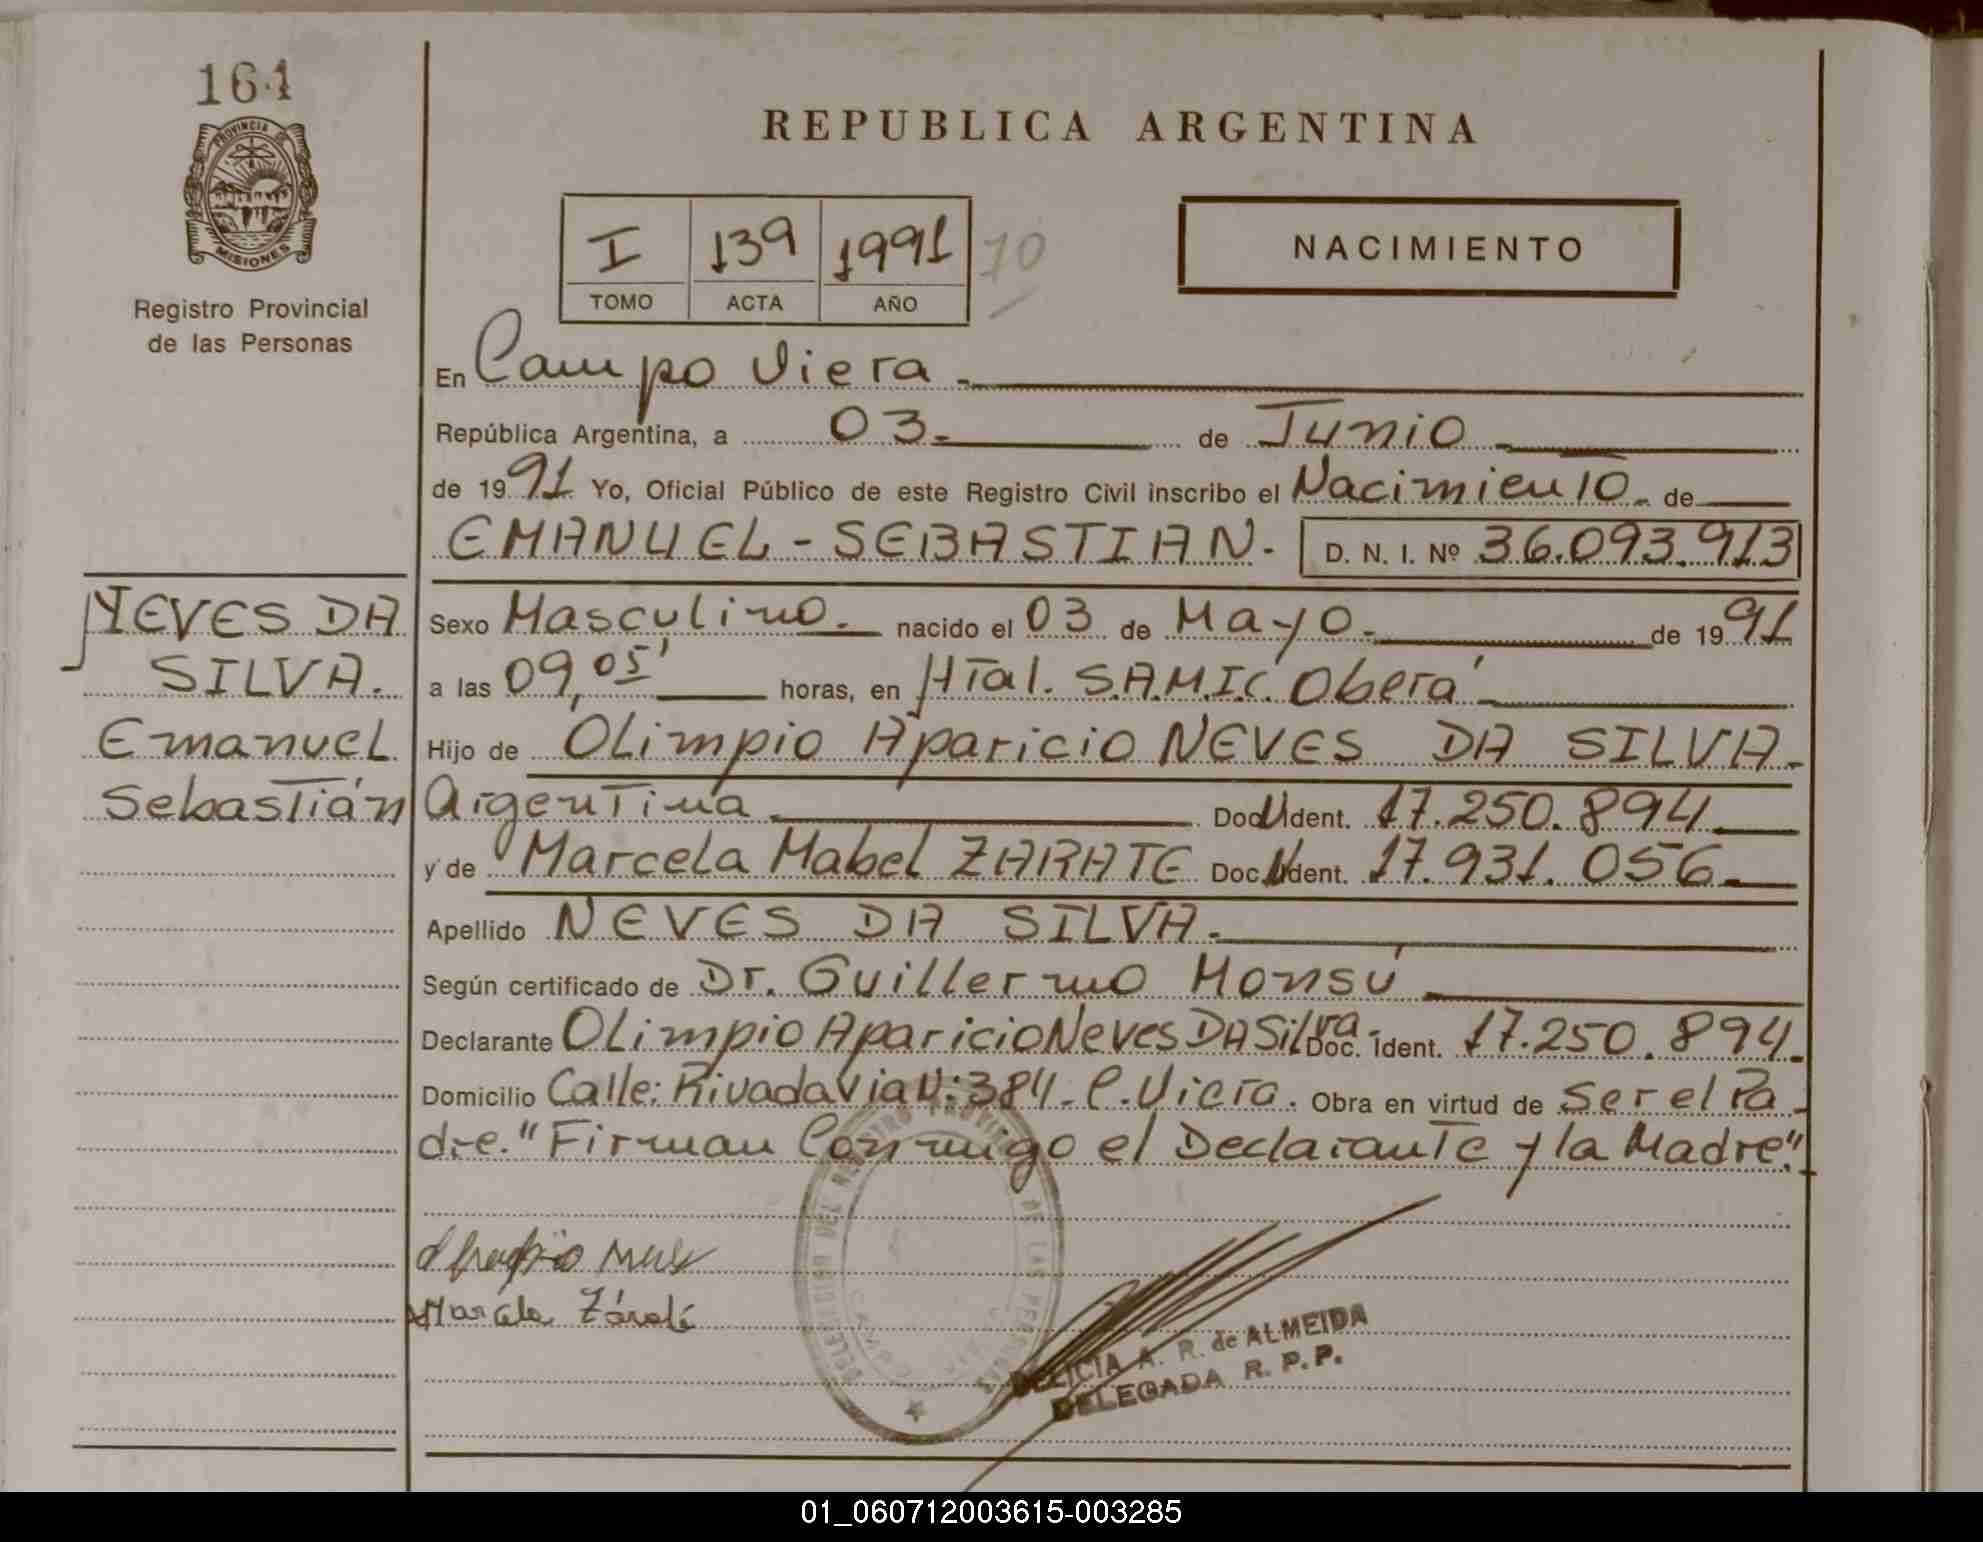 161
PROVINCIA DE
MISIONES
Registro Provincial
de las Personas
REPUBLICA ARGENTINA
I 139 1991 70
TOMO ACTA AÑO
NACIMIENTO
En Campo Viera.
República Argentina, a 03. de Junio
de 1991. Yo, Oficial Público de este Registro Civil inscribo el Nacimiento. de
EMANUEL - SEBASTIAN. D. N. I. Nº 36.093.913
NEVES DA
SILVA.
Emanuel
Sebastián
Sexo Masculino. nacido el 03 de Mayo. de 1991
a las 09,05' horas, en Htal. S.A.M.I.C. Oberá
Hijo de Olimpio Aparicio NEVES DA SILVA.
Argentina Doc. Ident. 17.250.894
y de Marcela Mabel ZARATE Doc. Ident. 17.931.056.
Apellido NEVES DA SILVA.
Según certificado de Dr. Guillermo Monsú
Declarante Olimpio Aparicio Neves DA Silva. Doc. Ident. 17.250.894.
Domicilio Calle: Rivadavia N: 384. C. Viera. Obra en virtud de ser el Pa
dre. "Firman Conmigo el Declarante y la Madre".
Marcela Zárate
DELEGACION DEL REGISTRO PROVINCIAL DE LAS PERSONAS
DELICIA A. R. de ALMEIDA
DELEGADA R. P. P.
01_060712003615-003285